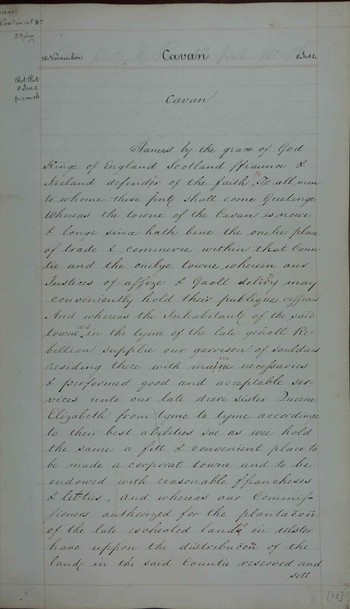 Cavan
Cavan
James by the grace of God
Kinge of England Scotland ffraunce &
Ireland defendor of the faith. To all men
to whome these psnts shall come Greetinge
Whereas the towne of the Cavan is nowe
& longe since hath bene the onelie place
of trade & commerce within that Coun-
tie and the onelye towne wherein our
Justices of assize & Gaoll delivy may
conveniently hold their publique cessions
And whereas the Inhabitants of the said
towne did in the tyme of the late genall Re-
bellion supplie our garrison of souldiers
residing there with manie necessaries
& performed good and acceptable ser-
vices unto our late deere sister Queene
Elizabeth from tyme to tyme accordinge
to their best abilities soe as wee hold
the same a fitt & convenient place to
be made a corporat towne and to be
endowed with reasonable ffrancheses
& libties. And whereas our Commis-
sioners authorized for the plantacon
of the late escheated lands in Ulster
have uppon the distribucon of the
land in the said Countie reserved and
sett